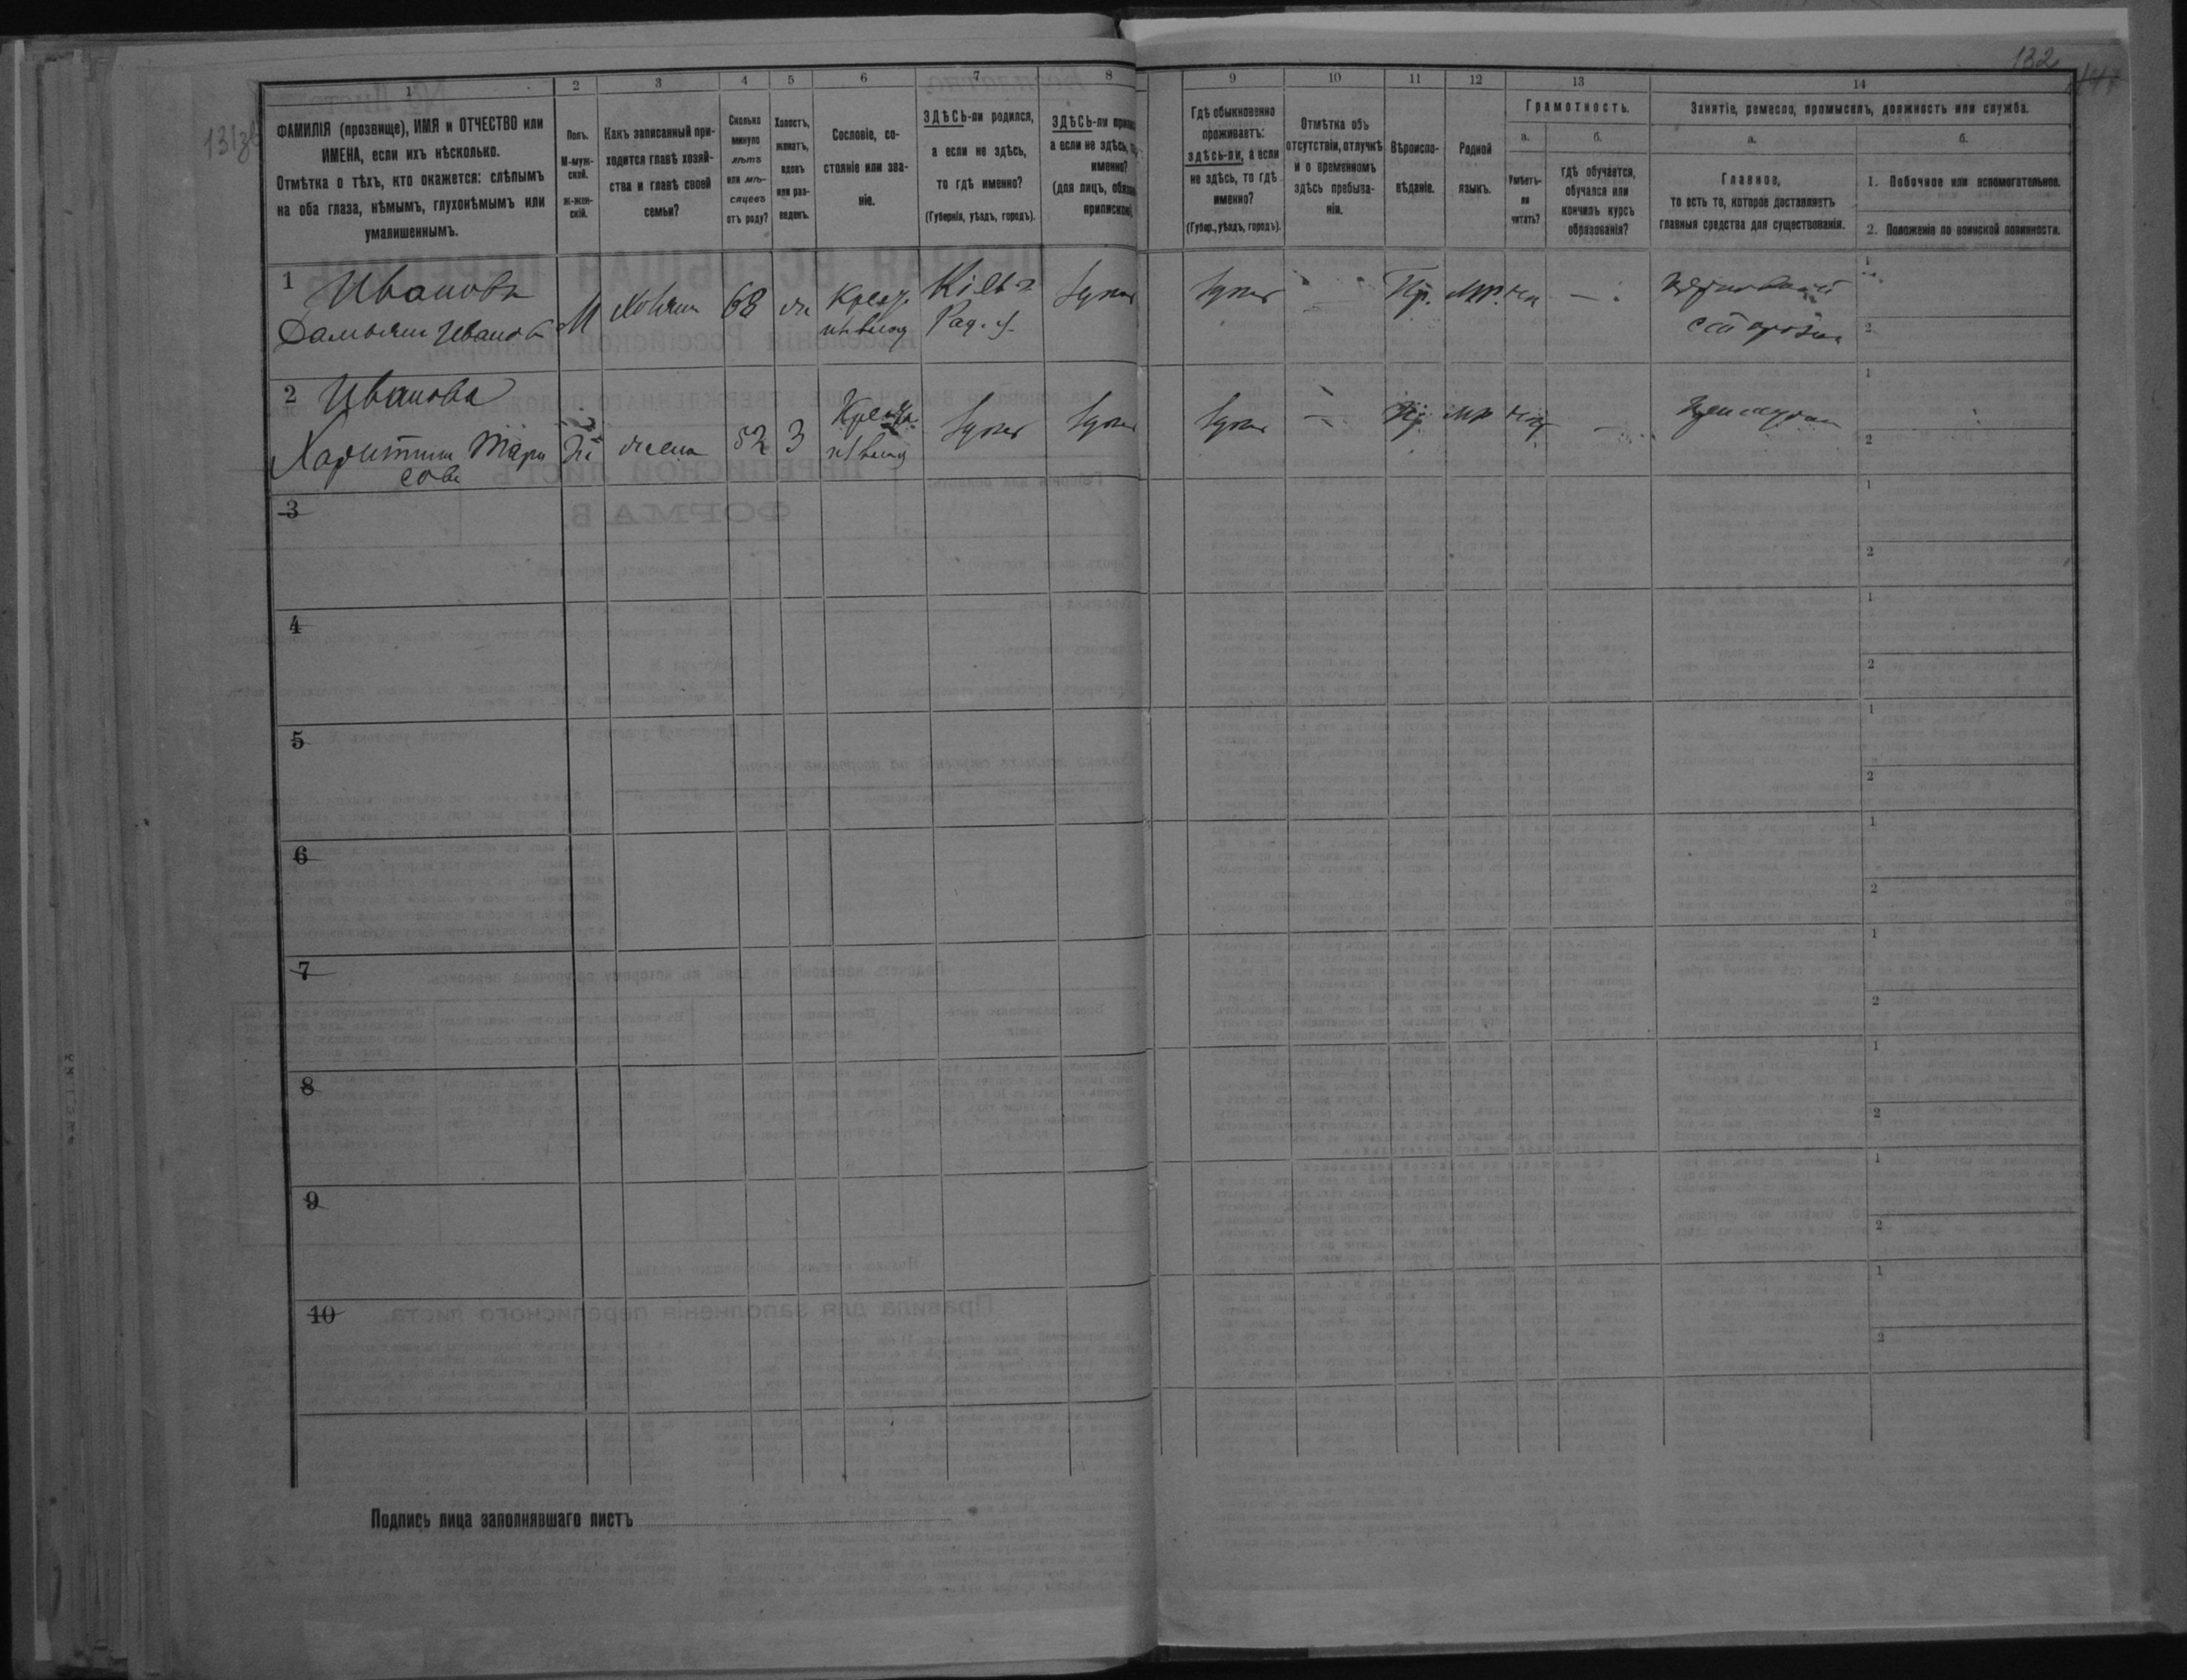 132
147
131об
1
ФАМИЛІЯ (прозвище), ИМЯ и ОТЧЕСТВО или
ИМЕНА, если ихъ нѣсколько.
Отмѣтка о тѣхъ, кто окажется: слѣпымъ
на оба глаза, нѣмымъ, глухонѣмымъ или
умалишеннымъ.
2
Полъ.
М-муж-
ской.
ж-жен-
скій.
3
Какъ записанный при-
ходится главѣ хозяй-
ства и главѣ своей
семьи?
4
Сколько
минуло
лѣтъ
или мѣ-
сяцевъ
отъ роду?
5
Холостъ,
женатъ,
вдовъ
или раз-
веденъ.
6
Сословіе, со-
стояніе или зва-
ніе.
7
ЗДѢСЬ-ли родился,
а если не здѣсь,
то гдѣ именно?
(Губернія, уѣздъ, городъ).
8
ЗДѢСЬ-ли
а если не здѣсь,
именно?
(для лицъ,
9
Гдѣ обыкновенно
проживаетъ:
здѣсь-ли, а если
не здѣсь, то гдѣ
именно?
(Губер., уѣздъ, городъ).
10
Отмѣтка объ
отсутствіи, отлучкѣ
и о временномъ
здѣсь пребыва-
ніи.
11
Вѣроиспо-
вѣданіе.
12
Родной
языкъ.
13
Грамотность.
а.
Умѣетъ-
ли
читать?
б.
гдѣ обучается,
обучался или
кончилъ курсъ
образованія?
14
Занятіе, ремесло, промыселъ, должность или служба.
а.
Главное,
то есть то, которое доставляетъ
главныя средства для существованія.
б.
1. Побочное или вспомогательное.
2. Положеніе по воинской повинности.
1
Ивановъ
Дамьянъ Иванов
М
Хозяинъ
68
Крест.
Кіевъ
Рад. у.
Пр.
Мр.
1
2
2
Иванова
Харитина Тара
сова
жена
52
З
Крест.
Пр
мр
1
2
3
1
2
4
1
2
5
1
2
6
1
2
7
1
2
8
1
2
9
1
2
10
1
2
Подпись лица заполнявшаго листъ